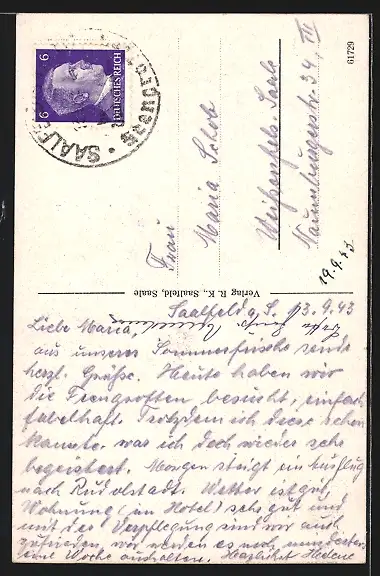 DEUTSCHES REICH
6 6
SAALFELD
61729
Frau
Maria Schob
Weißenfels. Saale
Naumburgerstr. 34 III
19.9.43
Verlag R. K., Saalfeld, Saale
Saalfeld a. S. 13.9.43
Liebe Maria,
aus unserer Sommerfrische sende
herzl. Grüße. Heute haben wir
die Feengrotten besucht, einfach
fabelhaft. Trotzdem ich diese schon
kannte, war ich doch wieder sehr
begeistert. Morgen steigt ein Ausflug
nach Rudolstadt. Wetter ist gut,
Wohnung (im Hotel) sehr gut und
mit der Verpflegung sind wir auch
zufrieden, wir werden es noch
eine Woche aushalten. Herzlichst Helene